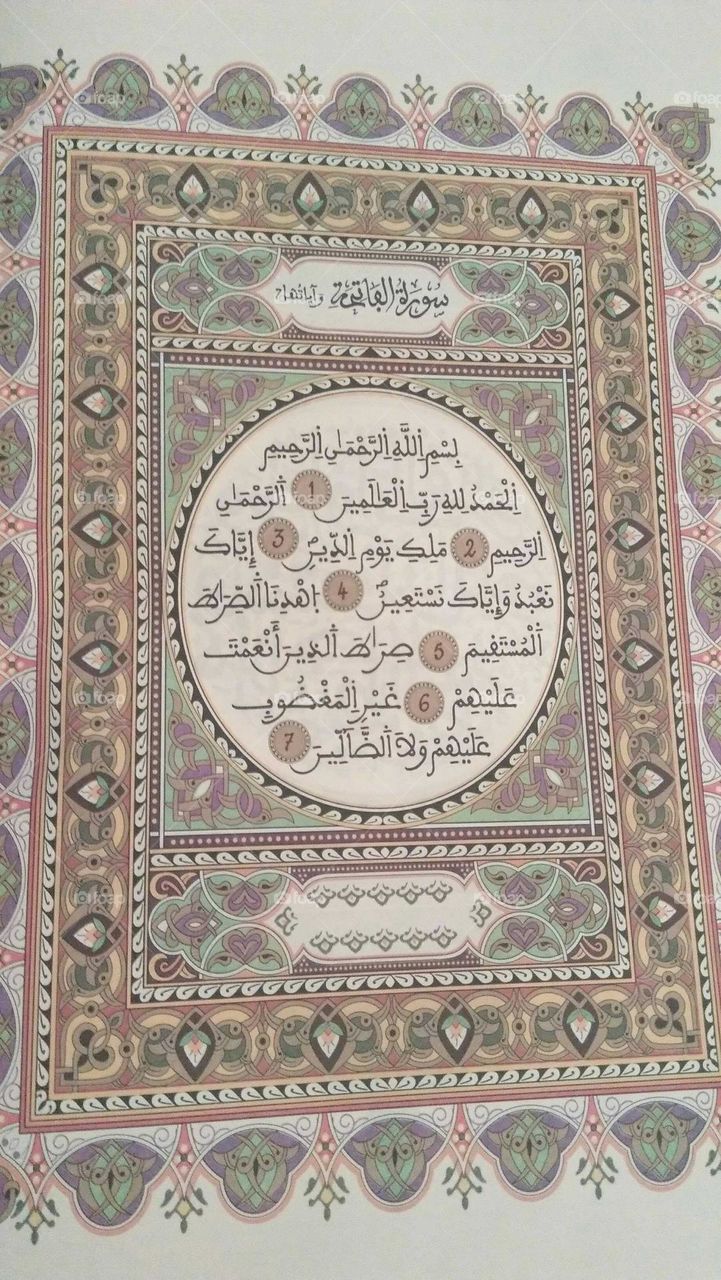 سُورَةُ الْفَاتِحَةِ وَآيَاتُهَا 7
بِسْمِ اِللَّهِ اِلرَّحْمَٰنِ اِلرَّحِيمِ
اِلْحَمْدُ لِلهِ رَبِّ اِلْعَٰلَمِينَ 1 اَلرَّحْمَٰنِ
اِلرَّحِيمِ 2 مَلِكِ يَوْمِ اِلدِّينِ 3 إِيَّاكَ
نَعْبُدُ وَإِيَّاكَ نَسْتَعِينُ 4 اِهْدِنَا اَلصِّرَٰطَ
اَلْمُسْتَقِيمَ 5 صِرَٰطَ اَلذِينَ أَنْعَمْتَ
عَلَيْهِمْ 6 غَيْرِ اِلْمَغْضُوبِ
عَلَيْهِمْ وَلَا اَلضَّآلِّينَ 7
foap